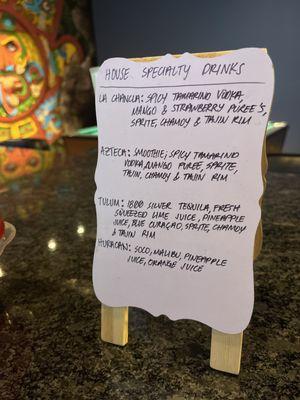 HOUSE SPECIALTY DRINKS
LA CHANCLA: SPICY TAMARIND VODKA,
MANGO & STRAWBERRY PUREE'S,
SPRITE, CHAMOY & TAJIN RIM
AZTECA: SMOOTHIE; SPICY TAMARIND
VODKA, MANGO PUREE, SPRITE,
TAJIN, CHAMOY & TAJIN RIM
TULUM: 1800 SILVER TEQUILA, FRESH
SQUEEZED LIME JUICE, PINEAPPLE
JUICE, BLUE CURAÇAO, SPRITE, CHAMOY
& TAJIN RIM
HURACAN: SOCO, MALIBU, PINEAPPLE
JUICE, ORANGE JUICE